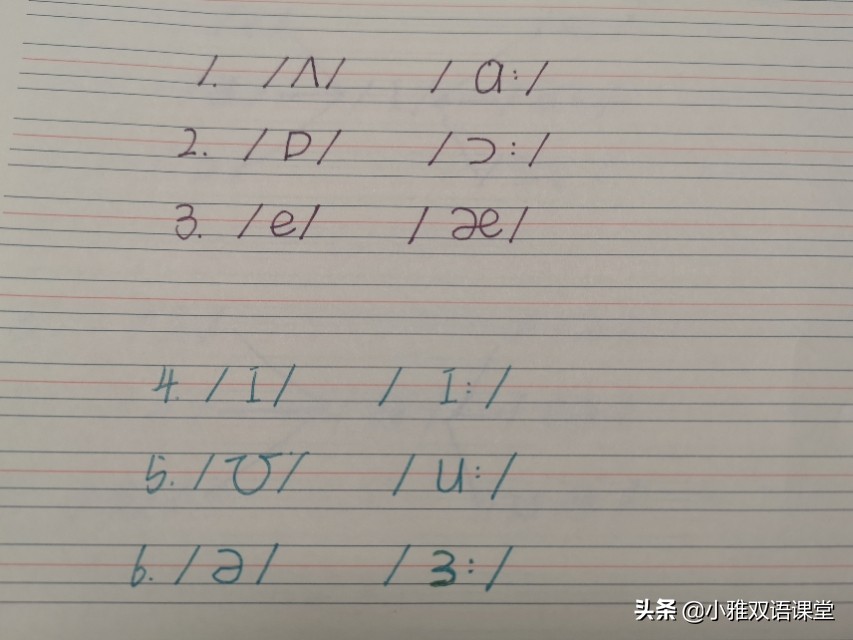 1. /ʌ/ /ɑ:/
2. /ɒ/ /ɔ:/
3. /e/ /æ/
4. /I/ /I:/
5. /ʊ/ /u:/
6. /ə/ /ɜ:/
头条 @小雅双语课堂